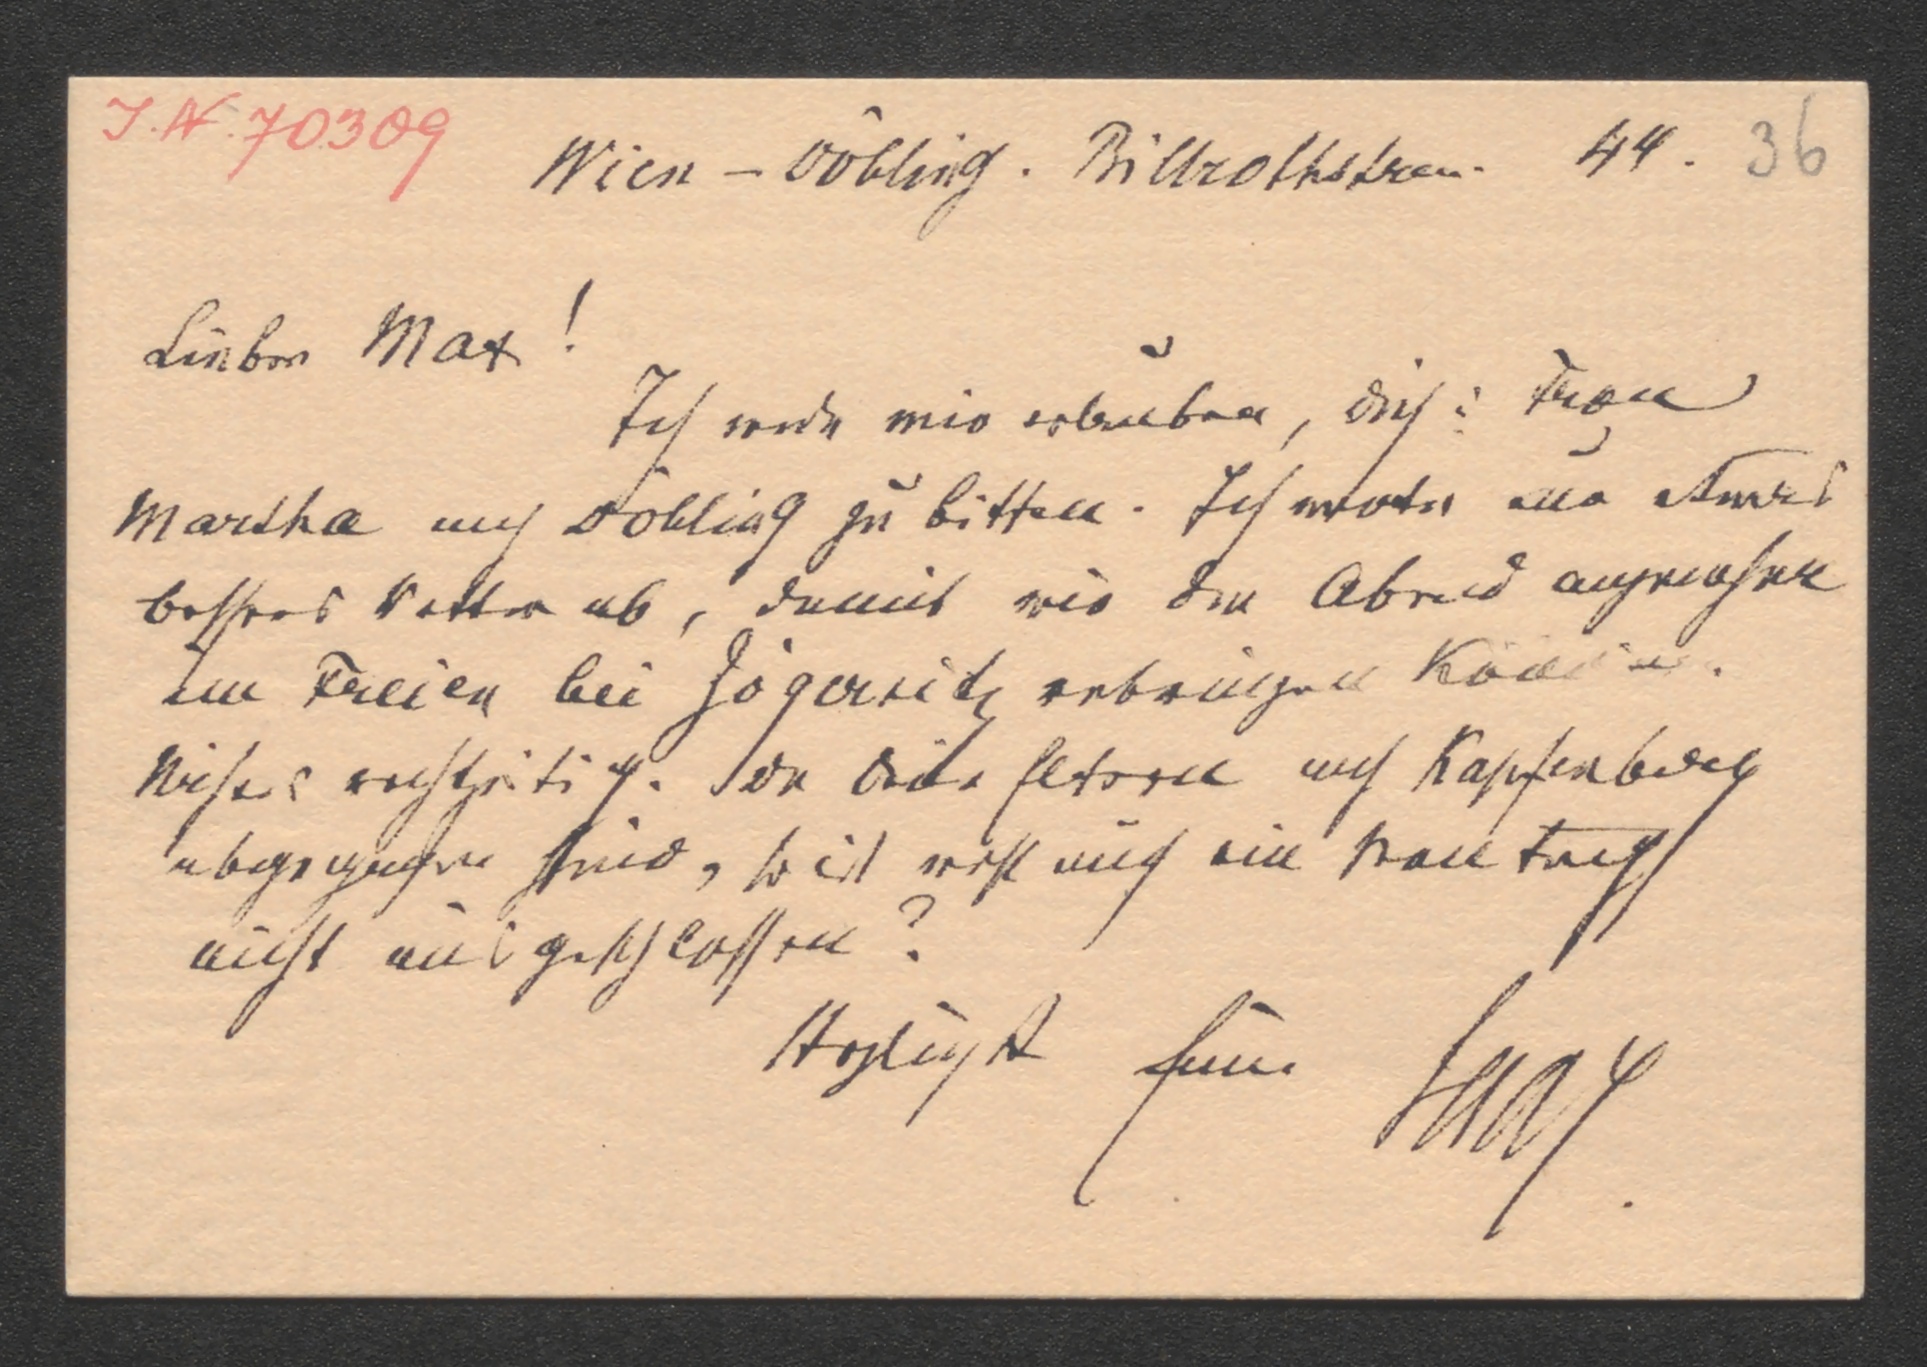 I.N. 70309
Wien – Döbling. Billrothstrasse 44. 36
Lieber Max!
Ich werde mir erlauben, dich & Frau
Martha nach Döbling zu bitten. Ich warte nur etwas
besseres Wetter ab, damit wir den Abend angenehm
im Freien bei Zögernitz verbringen können.
Näheres rechtzeitig. Da deine Eltern nach Kapfenberg
abgegangen sind, so ist wohl auch ein
nicht ausgeschlossen?
Herzlichst Euer
Saar